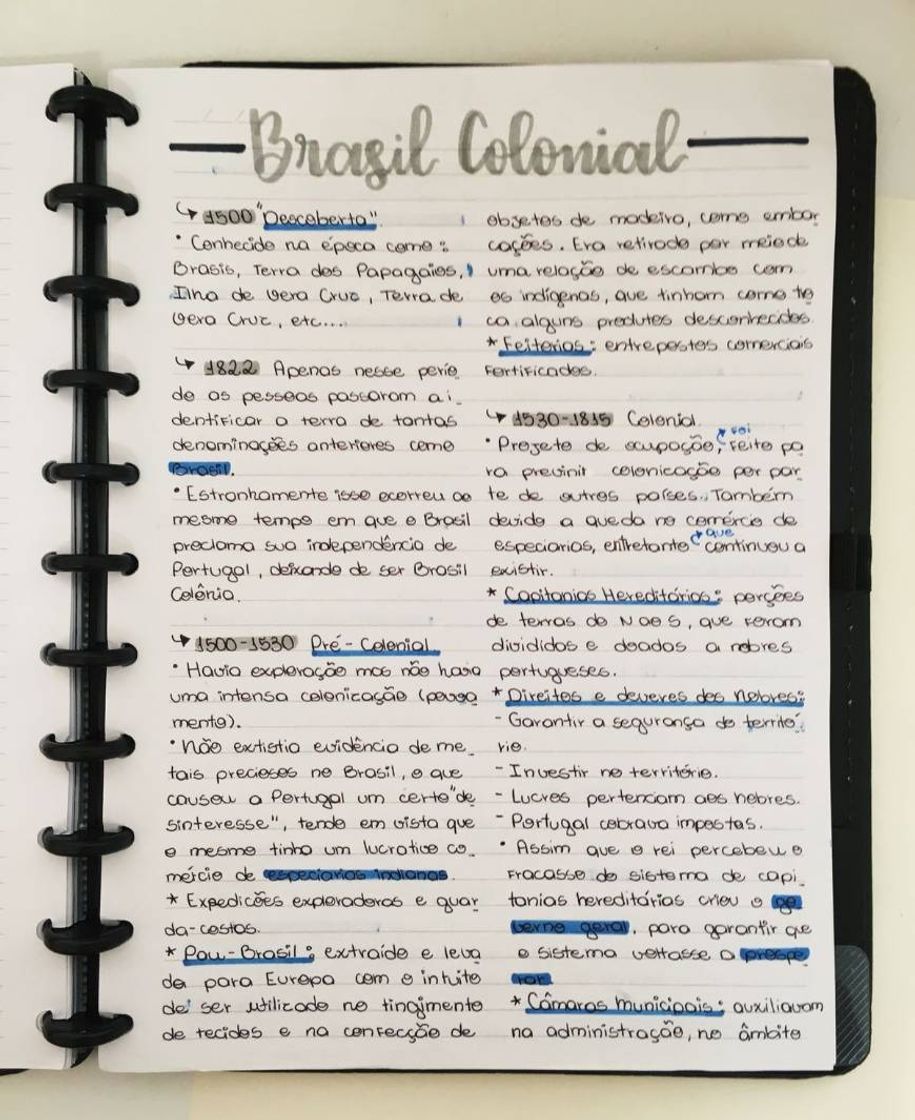 Brasil Colonial
↳ 1500 "Descoberta"
• Conhecido na época como:
Brasis, Terra dos Papagaios,
Ilha de Vera Cruz, Terra de
Vera Cruz, etc...
↳ 1822 Apenas nesse perío_
do as pessoas passaram a i_
dentificar a terra de tantas
denominações anteriores como
Brasil.
• Estranhamente isso ocorreu ao
mesmo tempo em que o Brasil
proclama sua independência de
Portugal, deixando de ser Brasil
Colônia.
↳ 1500-1530 Pré-Colonial
• Havia exploração mas não havia
uma intensa colonização (povoa
mento).
• Não extistia evidência de me_
tais preciosos no Brasil, o que
causou a Portugal um certo "de
sinteresse", tendo em vista que
o mesmo tinha um lucrativo co_
mércio de especiarias indianas.
* Expedicões exploradoras e guar
da-costas.
* Pau-Brasil: extraído e leva
do para Europa com o intuito
de ser utilizado no tingimento
de tecidos e na confecção de
objetos de madeira, como embar
cações. Era retirado por meio de
uma relação de escambo com
os indígenas, que tinham como tro
ca alguns produtos desconhecidos.
* Feitorias: entrepostos comerciais
fortificados.
↳ 1530-1815 Colonial.
• Projeto de ocupação, foi feito pa_
ra previnir colonicação por par_
te de outros países. Também
devido a queda no comércio de
especiarias, entretanto que continuou a
existir.
* Capitanias Hereditárias: porções
de terras do N ao S, que foram
divididos e doados a nobres
portugueses.
* Direitos e deveres dos Nobres:
- Garantir a segurança do territó_
rio.
- Investir no território.
- Lucros pertenciam aos nobres.
- Portugal cobrava impostos.
• Assim que o rei percebeu o
fracasso do sistema de capi_
tanias hereditárias criou o go
verno geral, para garantir que
o sistema voltasse a prospe
rar.
* Câmaras municipais: auxiliavam
na administração, no âmbito